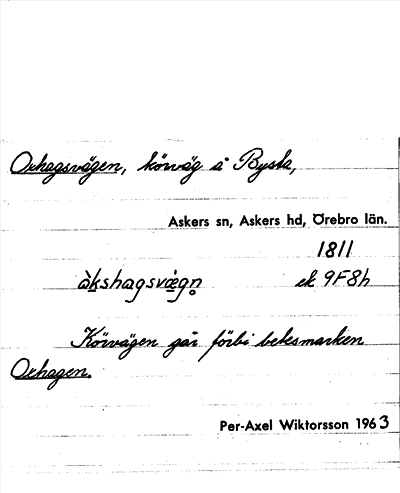 Oxhagsvägen, körväg å Bysta,
Askers sn, Askers hd, Örebro län.
1811
àkshagsvæ̀gn̥ ek 9F8h
Körvägen går förbi betesmarken
Oxhagen.
Per-Axel Wiktorsson 1963